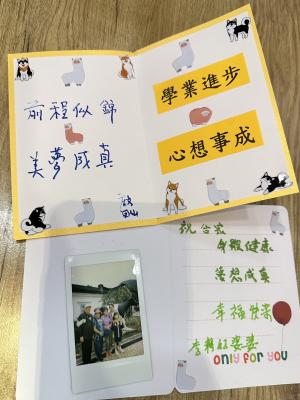 前程似錦
美夢成真
學業進步
心想事成
祝合家
身體健康
夢想成真
幸福快樂
李鮮紅婆婆
only FOR YOU